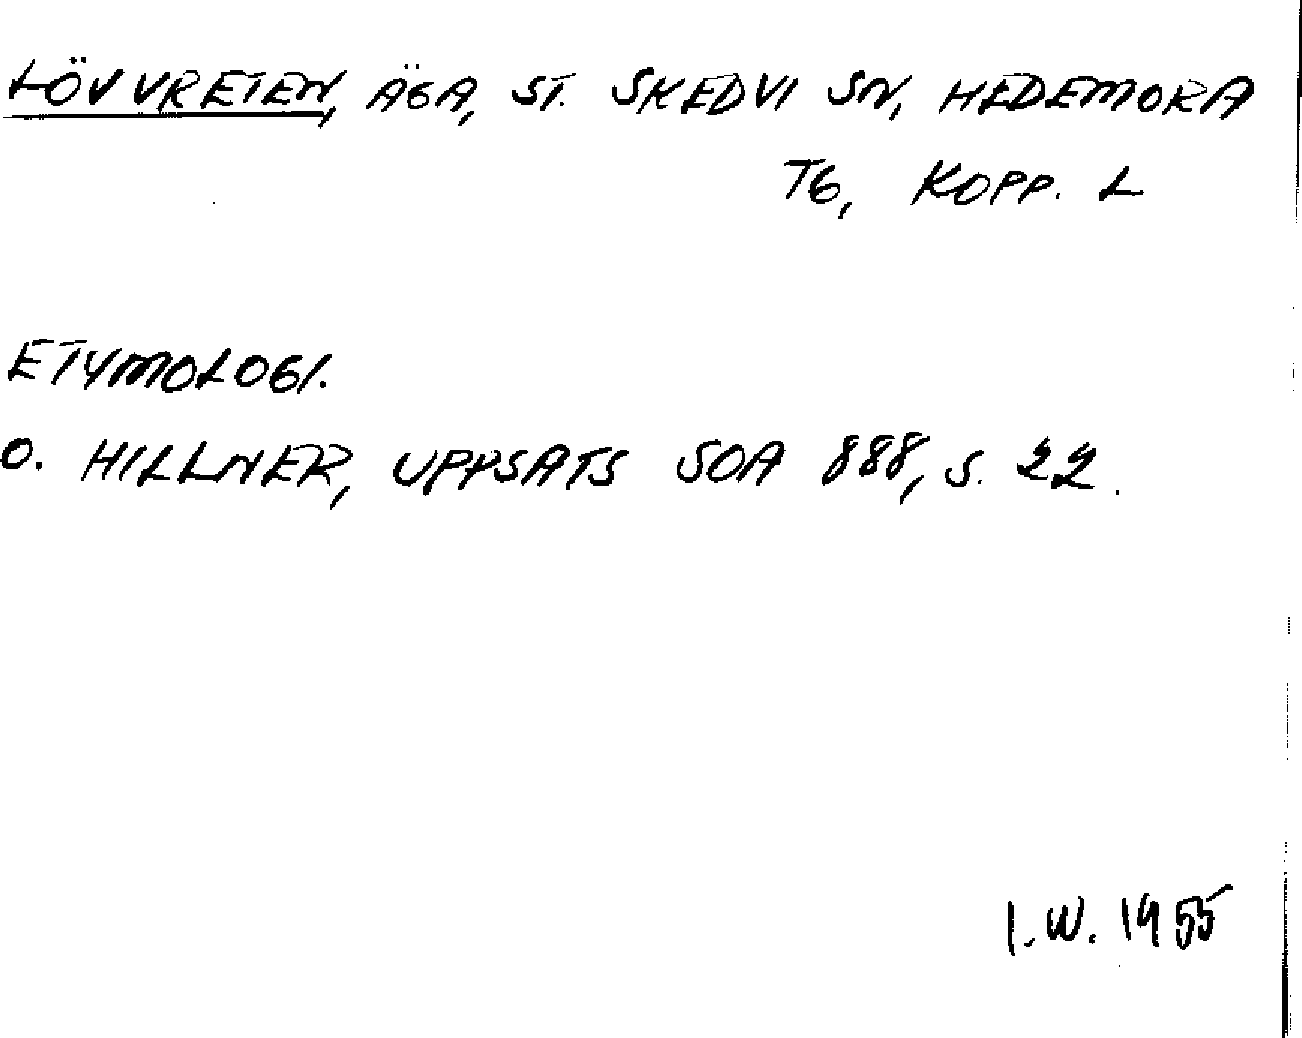 LÖVVRETEN, ÄGA, ST. SKEDVI SN, HEDEMORA
TG, KOPP. L
ETYMOLOGI.
O. HILLNER, UPPSATS SOA 888, S. 22.
I.W. 1955